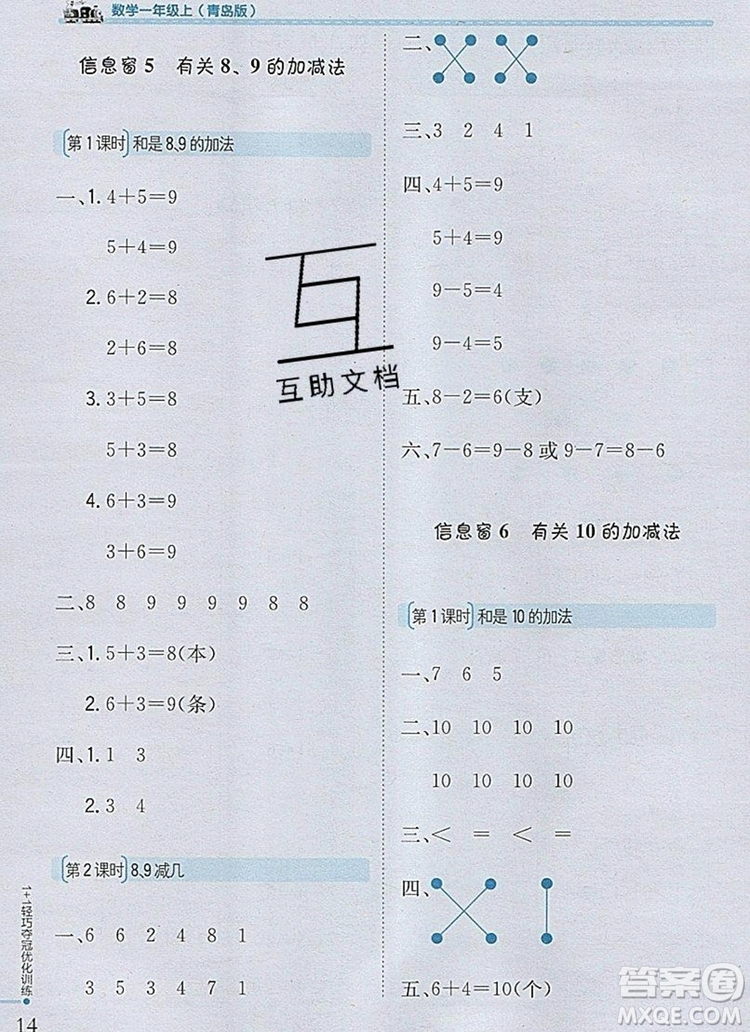 数学一年级上（青岛版）
信息窗5 有关8、9的加减法
第1课时 和是8、9的加法
一、1.4＋5＝9
5＋4＝9
2.6＋2＝8
2＋6＝8
3.3＋5＝8
5＋3＝8
4.6＋3＝9
3＋6＝9
二、8 8 9 9 9 9 8 8
三、1.5＋3＝8(本)
2.6＋3＝9(条)
四、1.1 3
2.3 4
第2课时 8、9减几
一、6 6 2 4 8 1
3 5 3 4 7 1
1+1轻巧夺冠优化训练
14
二、
三、3 2 4 1
四、4＋5＝9
5＋4＝9
9－5＝4
9－4＝5
五、8－2＝6(支)
六、7－6＝9－8或9－7＝8－6
信息窗6 有关10的加减法
第1课时 和是10的加法
一、7 6 5
二、10 10 10 10
10 10 10 10
三、＜ ＝ ＜ ＝
四、
五、6＋4＝10(个)
互
互助文档
答案圈
MXQE.COM